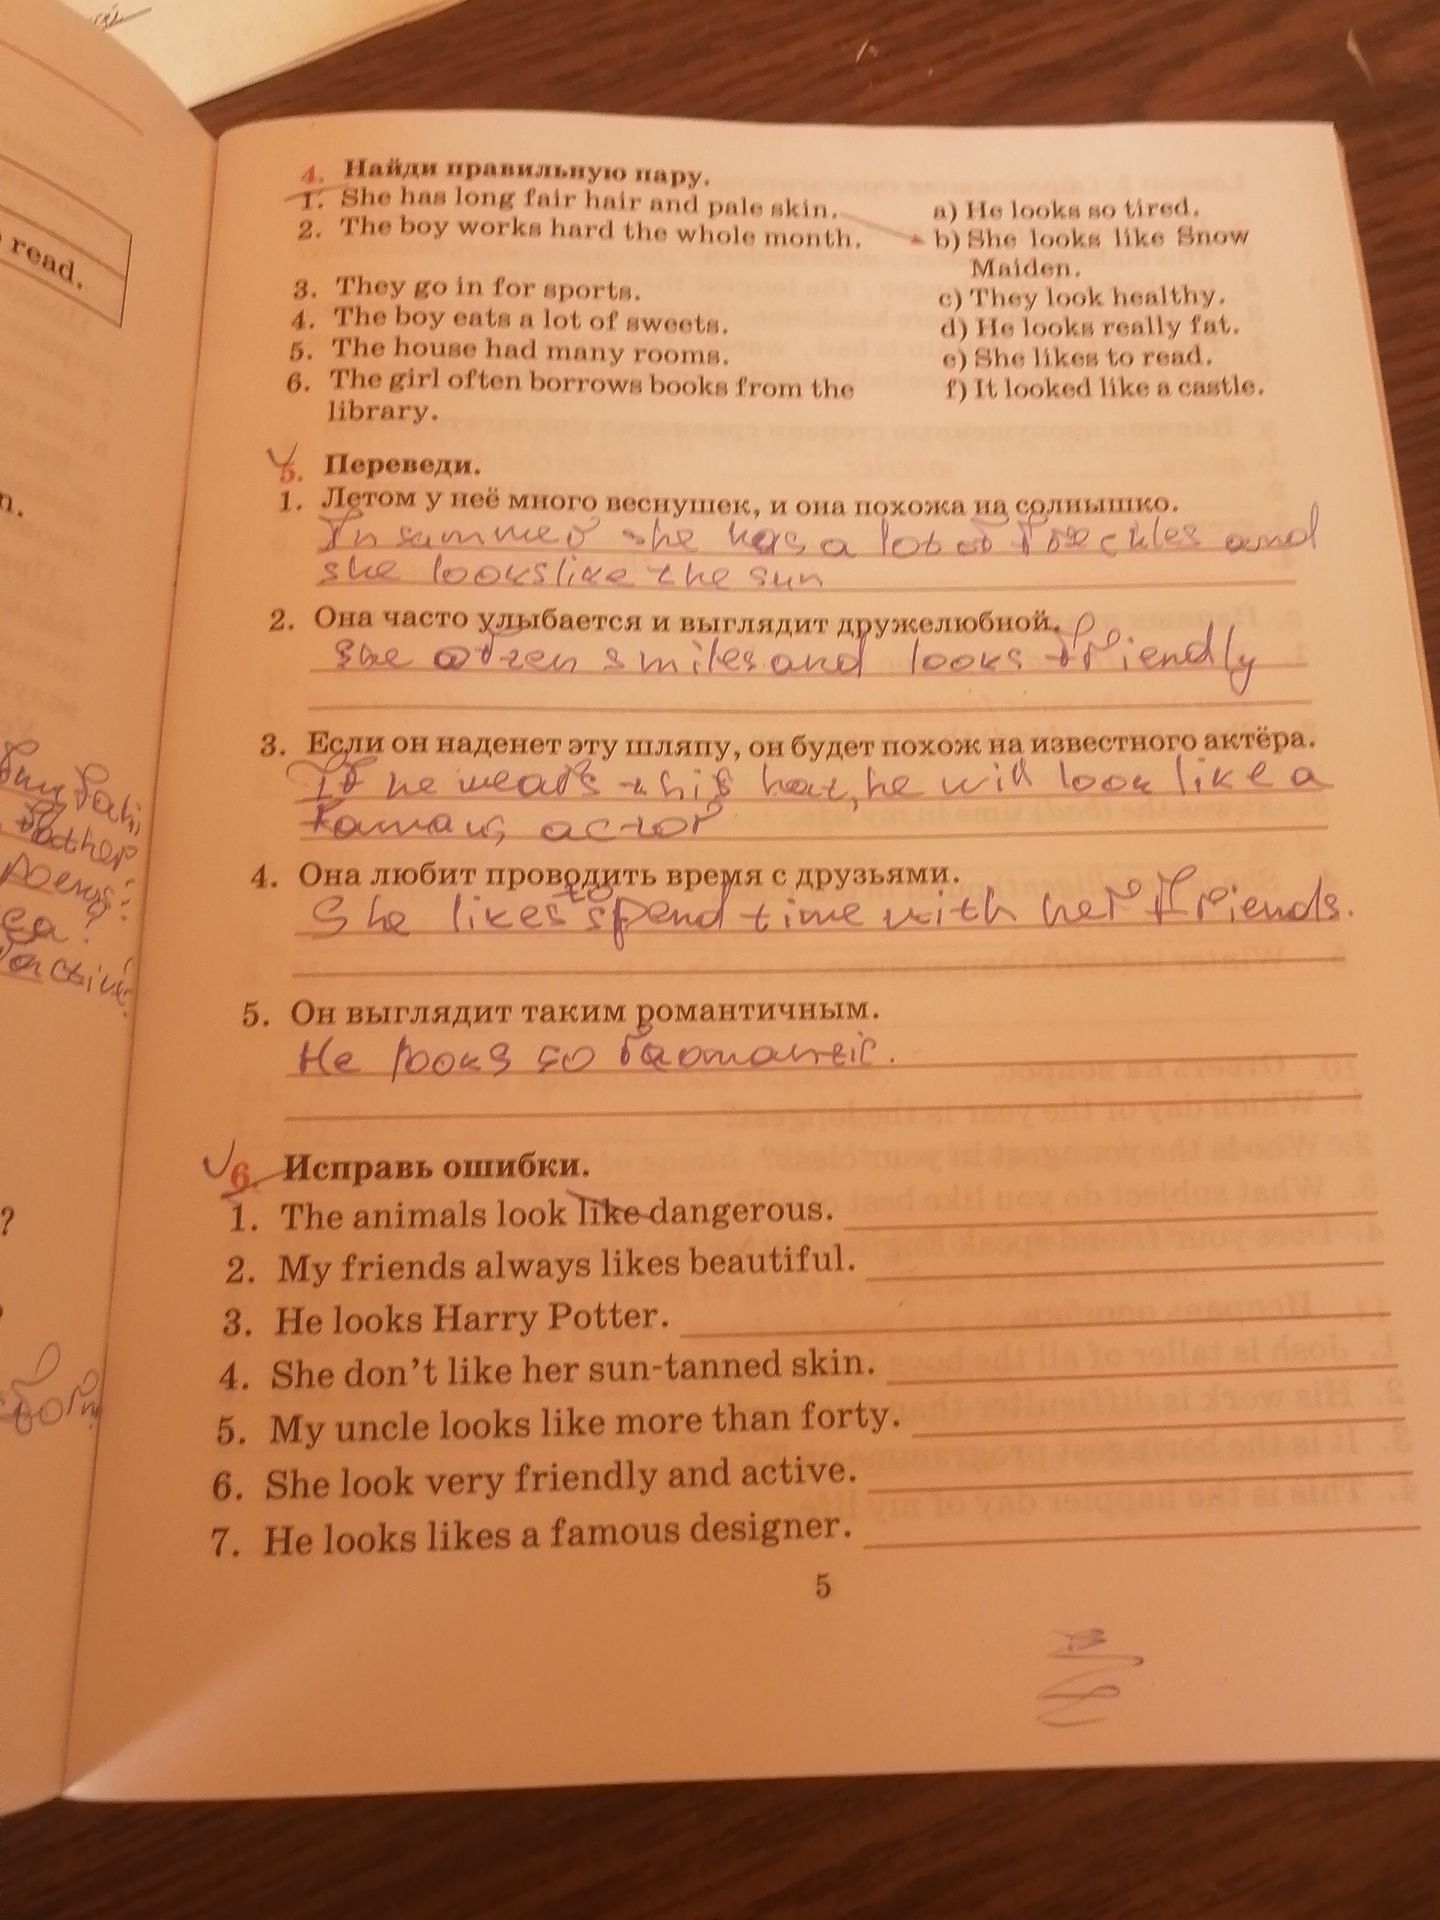 read.
n.
4. Найди правильную пару.
1. She has long fair hair and pale skin. a) He looks so tired.
2. The boy works hard the whole month. b) She looks like Snow
Maiden.
3. They go in for sports. c) They look healthy.
4. The boy eats a lot of sweets. d) He looks really fat.
5. The house had many rooms. e) She likes to read.
6. The girl often borrows books from the f) It looked like a castle.
library.
5. Переведи.
1. Летом у неё много веснушек, и она похожа на солнышко.
In summer she has a lot of freckles and
she looks like the sun
2. Она часто улыбается и выглядит дружелюбной.
She often smiles and looks friendly
3. Если он наденет эту шляпу, он будет похож на известного актёра.
If he wears this hat, he will look like a
famous actor
4. Она любит проводить время с друзьями.
She likes to spend time with her friends.
5. Он выглядит таким романтичным.
He looks so romantic.
father
poems?
?
6. Исправь ошибки.
1. The animals look like dangerous.
2. My friends always likes beautiful.
3. He looks Harry Potter.
4. She don't like her sun-tanned skin.
5. My uncle looks like more than forty.
6. She look very friendly and active.
7. He looks likes a famous designer.
5